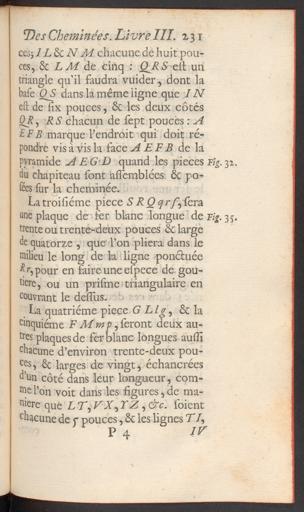 Des Cheminées. Livre III. 231
ces; IL & NM chacune de huit pou-
ces, & LM de cinq : QRS est un
triangle qu'il faudra vuider, dont la
base QS dans la même ligne que IN
est de six pouces, & les deux côtés
QR, RS chacun de sept pouces : A
EFB marque l'endroit qui doit ré-
pondre vis à vis la face AEFB de la
pyramide AEGD quand les pieces Fig. 32.
du chapiteau sont assemblées & po-
sées sur la cheminée.
La troisiéme piece SRQqrſ, sera
une plaque de fer blanc longue de Fig. 35.
trente ou trente-deux pouces & large
de quatorze, que l'on pliera dans le
milieu le long de la ligne ponctuée
Rr, pour en faire une espece de gou-
tiere, ou un prisme triangulaire en
couvrant le dessus.
La quatriéme piece GLlg, & la
cinquiéme FMmp, seront deux au-
tres plaques de fer blanc longues aussi
chacune d'environ trente-deux pou-
ces, & larges de vingt, échancrées
d'un côté dans leur longueur, com-
me l'on voit dans les figures, de ma-
niere que LT, VX, YZ, &c. soient
chacune de 5 pouces, & les lignes TI,
P 4 IV